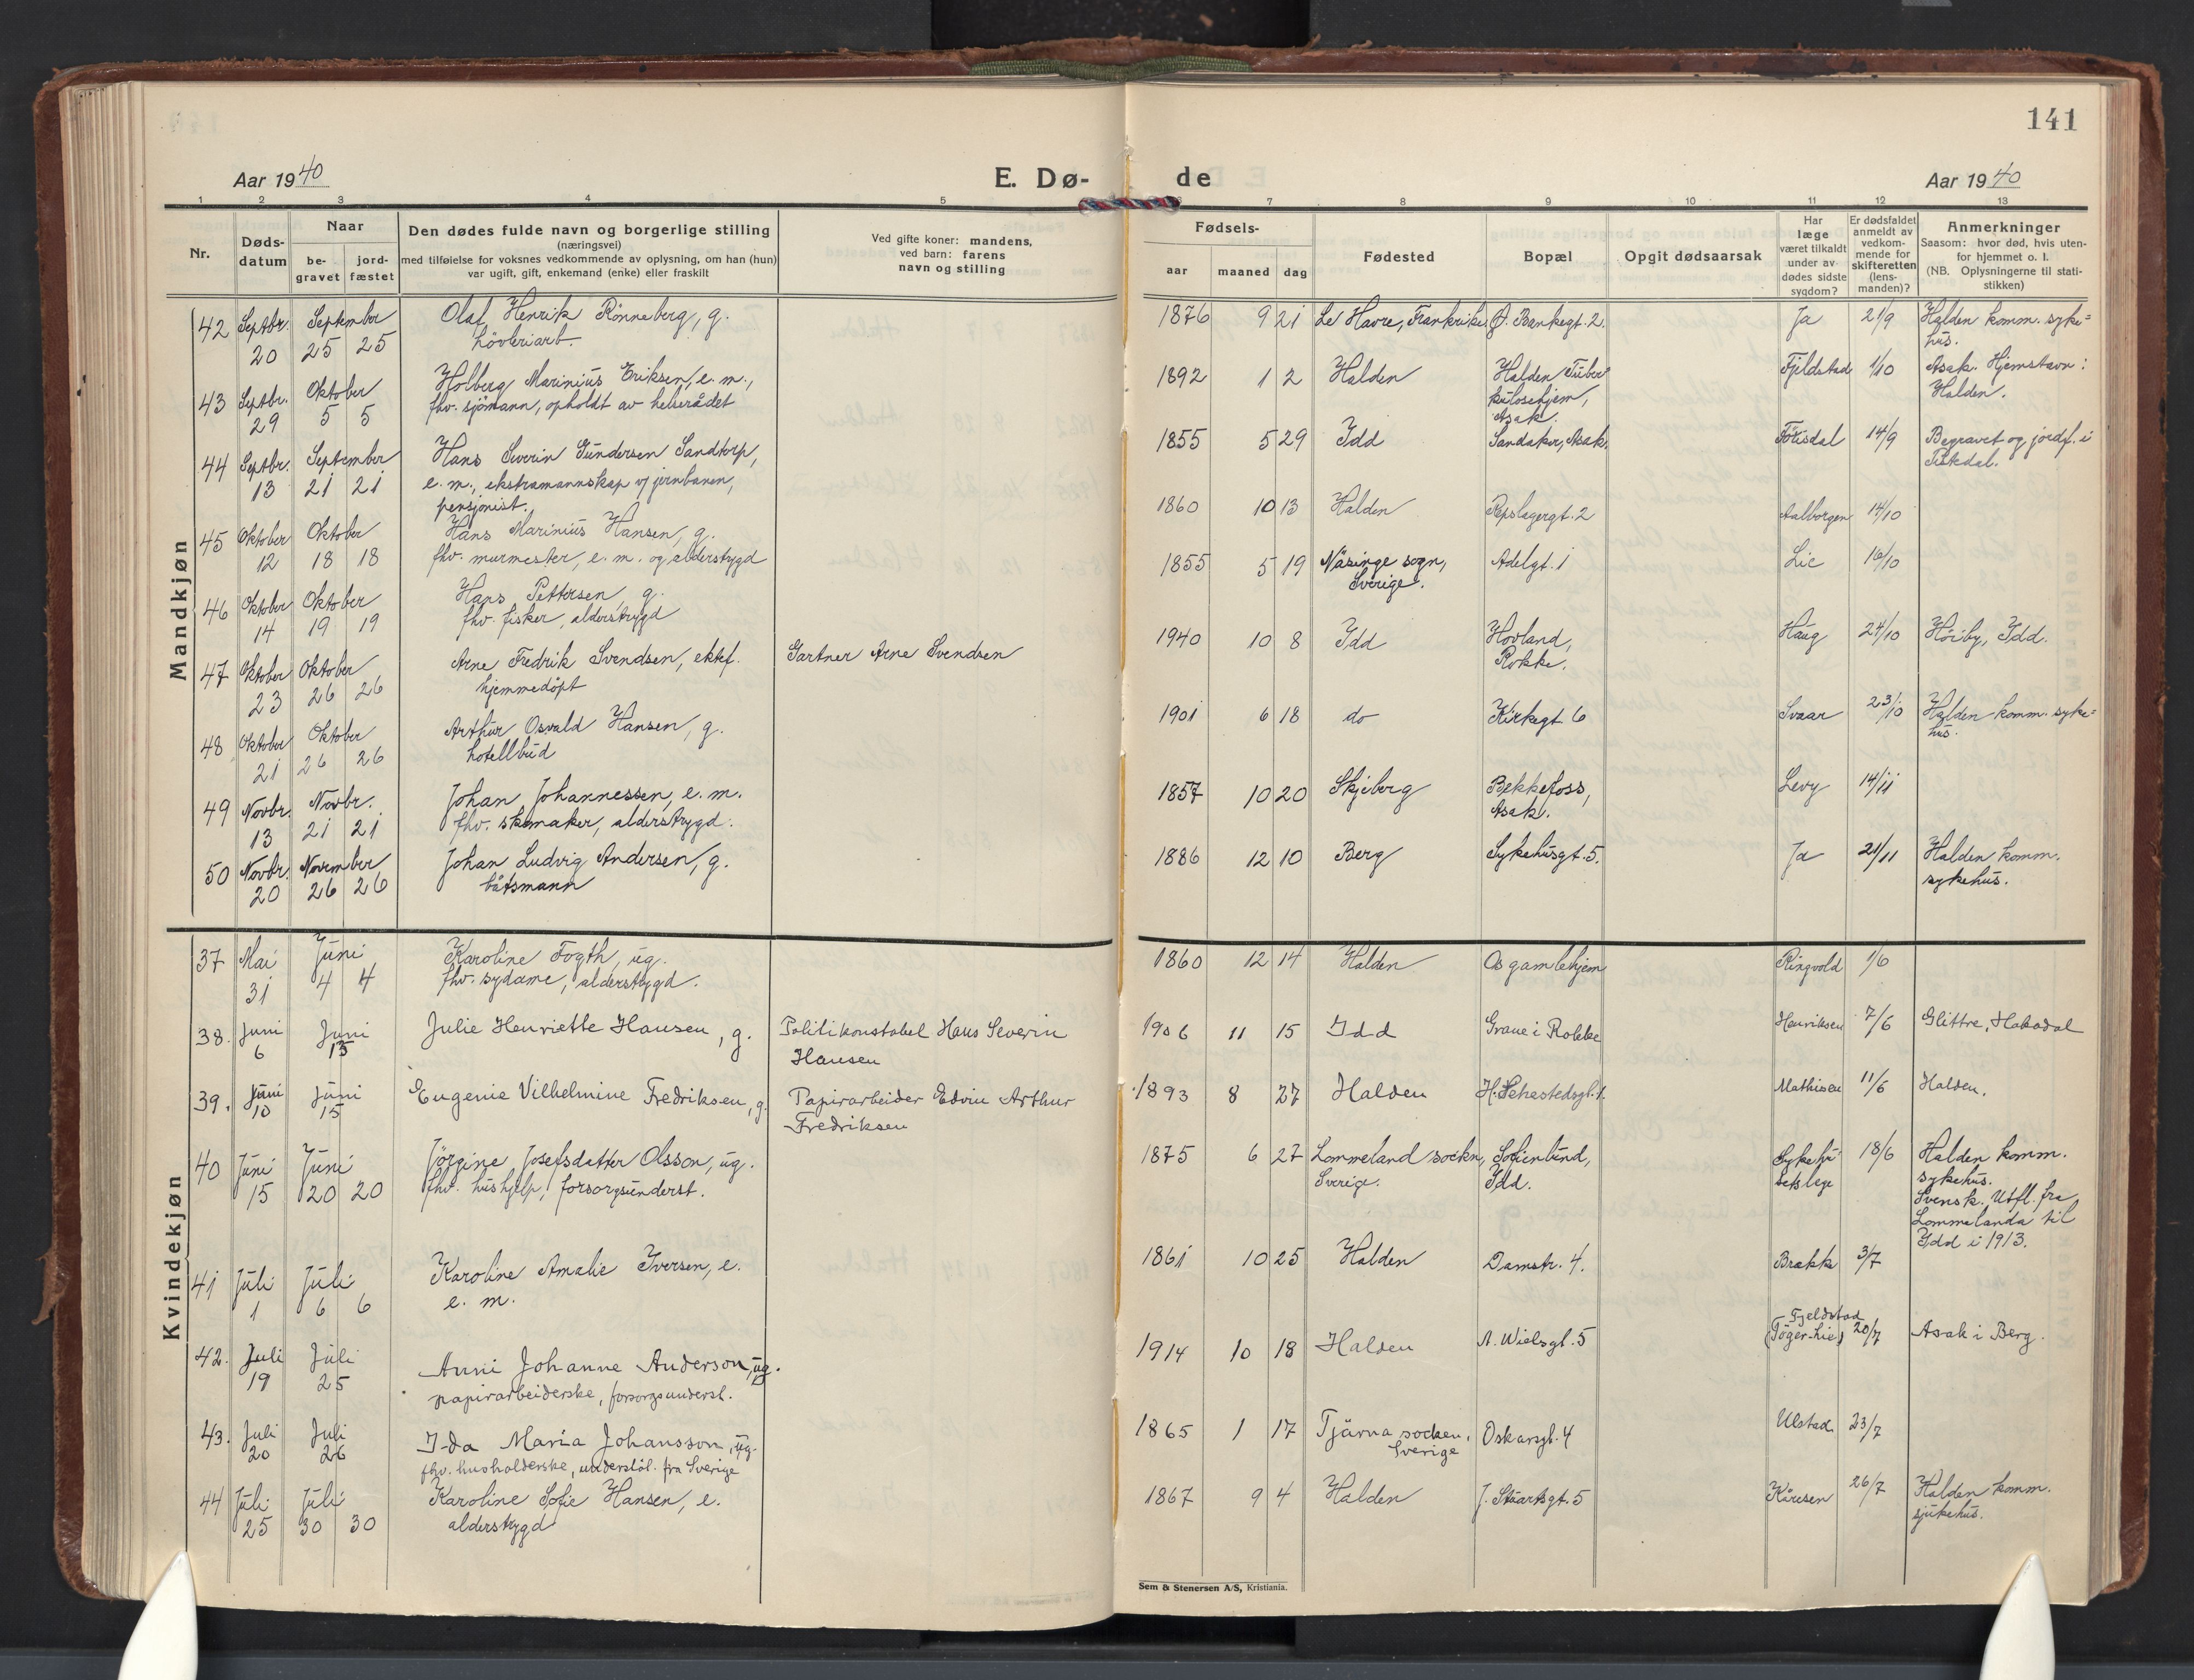 141
Aar 1940
E. Dø-
de
Aar 1940
1 2 3 4 5 6 7 8 9 10 11 12 13
Nr.
Døds-
datum
Naar
be-
gravet
jord-
fæstet
Den dødes fulde navn og borgerlige stilling
(næringsvei)
med tilføielse for voksnes vedkommende av oplysning, om han (hun)
var ugift, gift, enkemand (enke) eller fraskilt
Ved gifte koner: mandens,
ved barn: farens
navn og stilling
Fødsels-
aar
maaned
dag
Fødested
Bopæl
Opgit dødsaarsak
Har
læge
været tilkaldt
under av-
dødes sidste
sygdom?
Er dødsfaldet
anmeldt av
vedkom-
mende for
skifteretten
(lens-
manden)?
Anmerkninger
Saasom: hvor død, hvis uten-
for hjemmet o. l.
(NB. Oplysningerne til stati-
stikken)
Mandkjøn
42 Septbr. September Olaf Henrik Rönneberg, g. 1876 9 21 Le Havre, Frankrike Ø. Bankegt. 2. Ja 21/9 Halden komm. syke=
20 25 25 hövleriarb. hus.
43 Septbr. Oktober Holberg Marinius Eriksen, e. m., 1892 1 2 Halden Halden Tuber Fjeldstad 1/10 Asak. Hjemstavn:
29 5 5 fhv. sjömann, opholdt av helserådet kulosehjem, Halden.
Asak.
44 Septbr. September Hans Severin Gundersen Sandtorp, 1855 5 29 Idd Sandaker, Asak. 14/9 Begravet og jordf. i
13 21 21 e. m., ekstramannskap v/ jernbanen, Tistedal.
pensjonist.
45 Oktober Oktober Hans Marinius Hansen, g. 1860 10 13 Halden Repslagergt. 2 Aalborgen 14/10
12 18 18 fhv. murmester, e. m. og alderstygd
46 Oktober Oktober Hans Pettersen, g. 1855 5 19 Näsinge sogn, Adelgt. 1 Lie 16/10
14 19 19 fhv. fisker, alderstrygd Sverige.
47 Oktober Oktober Arne Fredrik Svendsen, ektef. Gartner Arne Svendsen 1940 10 8 Idd Hovland, Haug 24/10 Höiby, Idd.
23 26 26 hjemmedöpt Rokke.
48 Oktober Oktober Arthur Osvald Hansen, g. 1901 6 18 do Kirkegt 6 Svaar 23/10 Halden komm. syke=
21 26 26 hotellbud hus.
49 Novbr. Novbr. Johan Johannessen, e. m. 1857 10 20 Skjeberg Bekkefoss, Levy 14/11
13 21 21 fhv. skomaker, alderstrygd. Asak.
50 Novbr. November Johan Ludvig Andersen, g. 1886 12 10 Berg Sykehusgt. 5. Ja 21/11 Halden komm.
20 26 26 båtsmann sykehus.
Kvindekjøn
37 Mai Juni Karoline Fogth, ug. 1860 12 14 Halden Os gamlehjem Ringvold 1/6
31 4 4 fhv. sydame, alderstygd.
38. Juni Juni Julie Henriette Hansen, g. Politikonstabel Hans Severin 1906 11 15 Idd Grave i Rokke Henriksen 7/6 Glittre, Hakadal
6 13 Hansen
39. Juni Juni Eugenie Vilhelmine Fredriksen, g. Papirarbeider Edvin Arthur 1893 8 27 Halden H. Sehestedsgt. 1. Mathisen 11/6 Halden.
10 15 Fredriksen
40 Juni Juni Jörgine Josefsdatter Olsson, ug. 1875 6 27 Lommeland sockn, Sofienlund, Sykehu 18/6 Halden komm.
15 20 20 fhv. hushjelp, forsorgsunderst. Sverige. Idd. sets lege sykehus.
Svensk. Utfl. fra
Lommelanda til
Idd i 1913.
41 Juli Juli Karoline Amalie Iversen, e. 1861 10 25 Halden Damstr. 4. Brakk 3/7
1 6 6 e. m.
42. Juli Juli Anni Johanne Anderson, ug. 1914 10 18 Halden A. Wielsgt. 5 Fjeldstad 20/7 Asak i Berg.
19 25 papirarbeiderske, forsorgsunderst. (Töger-Lie)
43. Juli Juli Ida Maria Johansson, ug. 1865 1 17 Tjärna socken, Oskarsgt. 4 Ulstad 23/7
20 26 fhv. husholderske, understöt. fra Sverige Sverige
44 Juli Juli Karoline Sofie Hansen, e. 1867 9 4 Halden J. Stuartsgt. 5 26/7 Halden komm.
25 30 30 alderstrygd sjukehus.
Sem & Stenersen A/S, Kristiania.